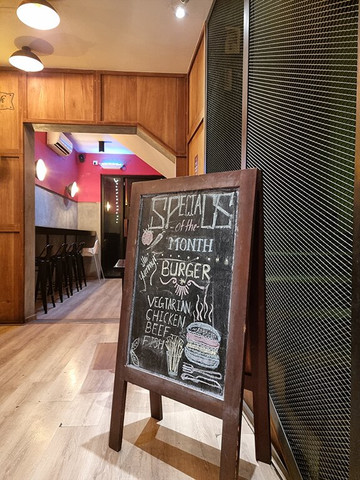 SPECIALS
-of the-
MONTH
BURGER
VEGTARIAN
CHICKEN
BEEF
FISH